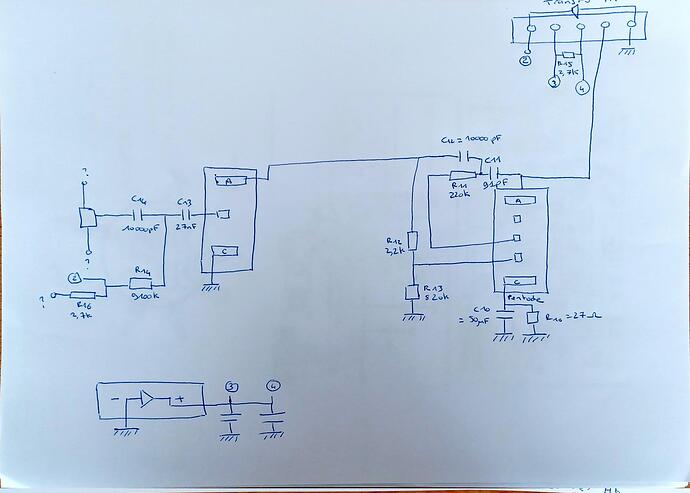 2
R15
2,7K
3
4
C12 = 10000pF
C11
91pF
R11
220K
A
C
Pentode
R12
2,2K
R13
820K
C10
= 50µF
R10 = 27Ω
?
C14
10000pF
C13
27nF
A
C
?
2
R14
9100K
?
R16
2,7K
-
+
3
4